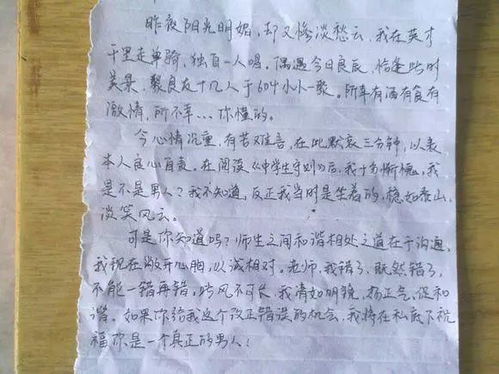 昨夜阳光明媚,却又惨淡愁云,我在英才
千里走单骑,独自一人喝。偶遇今日良辰,恰逢此时
美景,聚良友十几人于604小小一歌。所幸有酒有食有
激情,所不幸...你懂的。
今心情沉重,有苦难言,在此默哀三分钟,以表
本人良心自责。在阅读《中学生守则》后,我十分惭愧,我
是不是男人?我不知道,反正我当时是坐着的,稳如泰山,
淡笑风云。
可是你知道吗?师生之间和谐相处之道在于沟通,
我现在敞开心胸,以诚相对,老师,我错了,既然错了,
不能一错再错,此风不可长,我清如明镜,扬正气,促和
谐。如果你给我这个改正错误的机会,我将在私底下祝
福你是一个真正的男人!